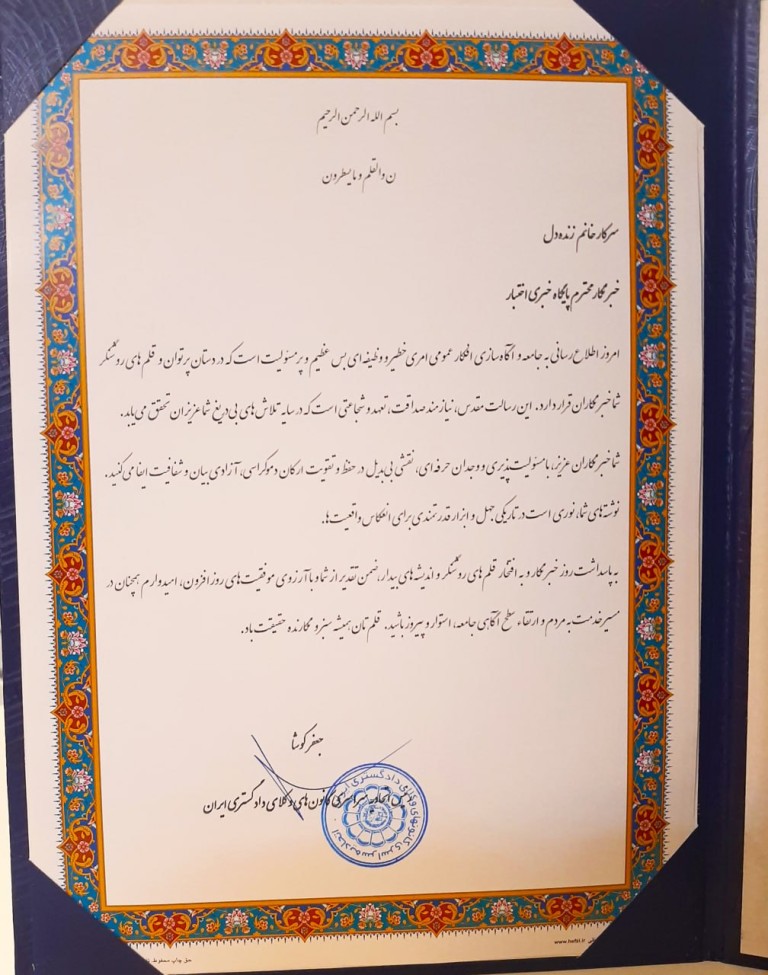 بسم الله الرحمن الرحیم
ن والقلم و ما یسطرون
سرکار خانم زنده‌دل
خبرنگار محترم پایگاه خبری اختبار
امروز اطلاع رسانی به جامعه و آگاه‌سازی افکار عمومی امری خطیر و وظیفه‌ای بس عظیم و پر مسئولیت است که در دستان پرتوان و قلم‌های روشنگر
شما خبرنگاران قرار دارد. این رسالت مقدس، نیازمند صداقت، تعهد و شجاعتی است که در سایه تلاش‌های بی‌دریغ شما عزیزان تحقق می‌یابد.
شما خبرنگاران عزیز، با مسئولیت‌پذیری و وجدان حرفه‌ای، نقشی بی‌بدیل در حفظ و تقویت ارکان دموکراسی، آزادی بیان و شفافیت ایفا می‌کنید.
نوشته‌های شما، نوری است در تاریکی جهل و ابزار قدرتمندی برای انعکاس واقعیت‌ها.
به پاسداشت روز خبرنگار و به افتخار قلم‌های روشنگر و اندیشه‌های بیدار، ضمن تقدیر از شما و با آرزوی موفقیت‌های روزافزون، امیدوارم همچنان در
مسیر خدمت به مردم و ارتقاء سطح آگاهی جامعه، استوار و پیروز باشید. قلم‌تان همیشه سبز و نگارنده حقیقت باد.
جعفر کوشا
رئیس اتحادیه سراسری کانون‌های وکلای دادگستری ایران
اتحادیه سراسری کانونهای وکلای دادگستری ایران
حق چاپ محفوظ